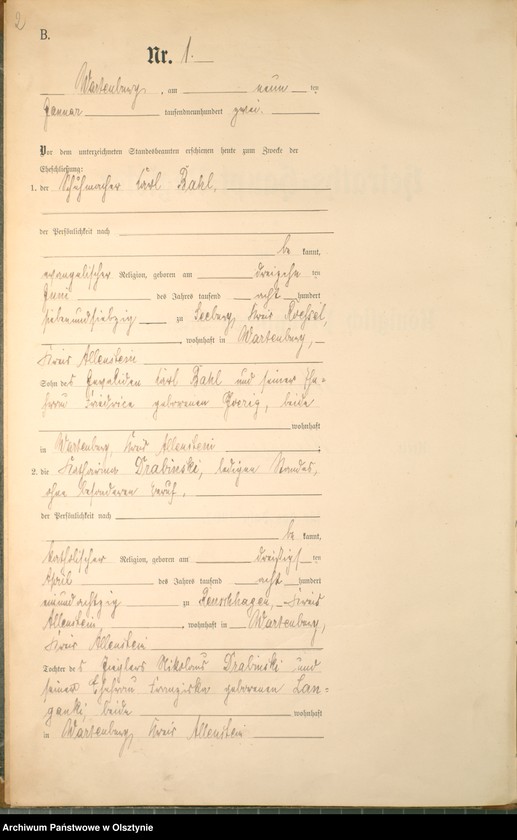 2
B.
Nr. 1.
Wartenburg, am neun ten
Januar tausendneunhundert zwei.
Vor dem unterzeichneten Standesbeamten erschienen heute zum Zwecke der
Eheschließung:
1. der Schuhmacher Carl Bahl,
der Persönlichkeit nach
be kannt,
evangelischer Religion, geboren am dreizehn ten
Juni des Jahres tausend acht hundert
siebenundsiebzig zu Seeburg, Kreis Roessel,
, wohnhaft in Wartenburg,
Kreis Allenstein
Sohn des Invaliden Carl Bahl und seiner Ehe=
frau Friedrice geborenen Goerig, beide
wohnhaft
in Wartenburg Kreis Allenstein
2. die Katharina Drabinski, ledigen Standes,
ohne besonderen Beruf,
der Persönlichkeit nach
be kannt,
katholischer Religion, geboren am dreißigs ten
April des Jahres tausend acht hundert
einundachtzig zu Reuschhagen, Kreis
Allenstein, wohnhaft in Wartenburg,
Kreis Allenstein
Tochter des Zieglers Nikolaus Drabinski und
seiner Ehefrau Franziska geborenen Lan=
ganki, beide wohnhaft
in Wartenburg, Kreis Allenstein
Archiwum Państwowe w Olsztynie